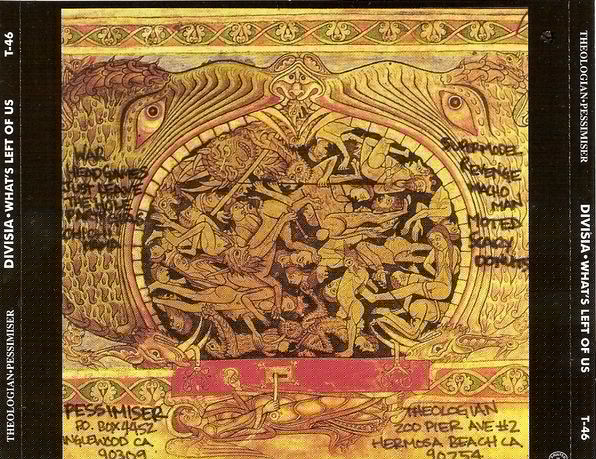 THEOLOGIAN•PESSIMISER
DIVISIA•WHAT'S LEFT OF US
T-46
WAR
HEADGAMES
JUST LEAVE
THE HOLE
SUPERMODEL
REVENGE
MACHO
MAN
MOTED
SCARY
DONUTS
PESSIMISER
P.O. BOX 4452
INGLEWOOD CA
90309
THEOLOGIAN
200 PIER AVE #2
HERMOSA BEACH CA
90754
THEOLOGIAN•PESSIMISER
DIVISIA•WHAT'S LEFT OF US
T-46